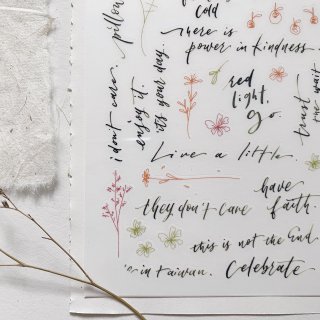 cold
there is
power in kindness.
pillow
i don't care.
enjoy it.
it's your day.
red
light,
go.
trust
the wait
Live a little.
have
faith.
they don't care
this is not the End
in taiwan.
Celebrate